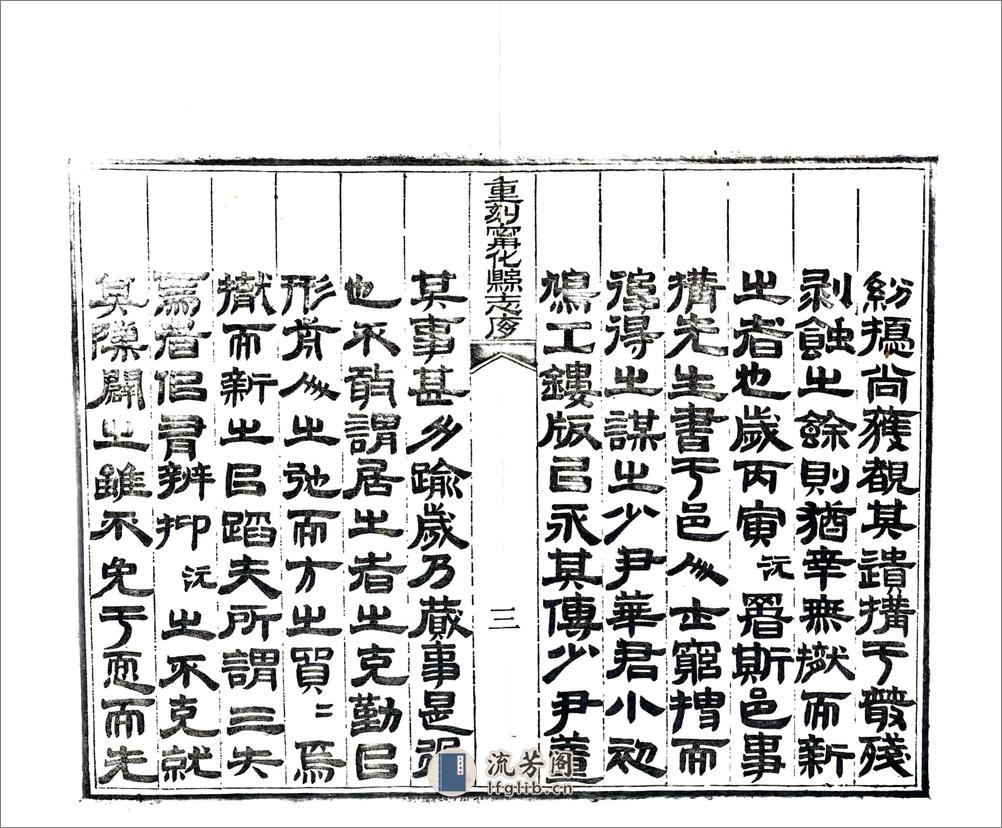 紛擾尚獲觀其遺搆于叢殘
剥蝕之餘則猶幸無撤而新
之者也歲丙寅沅署斯邑事
搆先生書于邑人士窮搜而
僅得之謀之少尹華君小初
鳩工鏤版以永其傳少尹董
重刻甯化縣志序
三
其事甚多踰歲乃蕆事是役
也不敢謂居之者之克勤以
形前人之弛而方之貿二焉
撤而新之以蹈夫所謂三失
焉者佀有辨抑沅之不克就
其隙闢之雖不免于而先
流芳阁
lfglib.cn